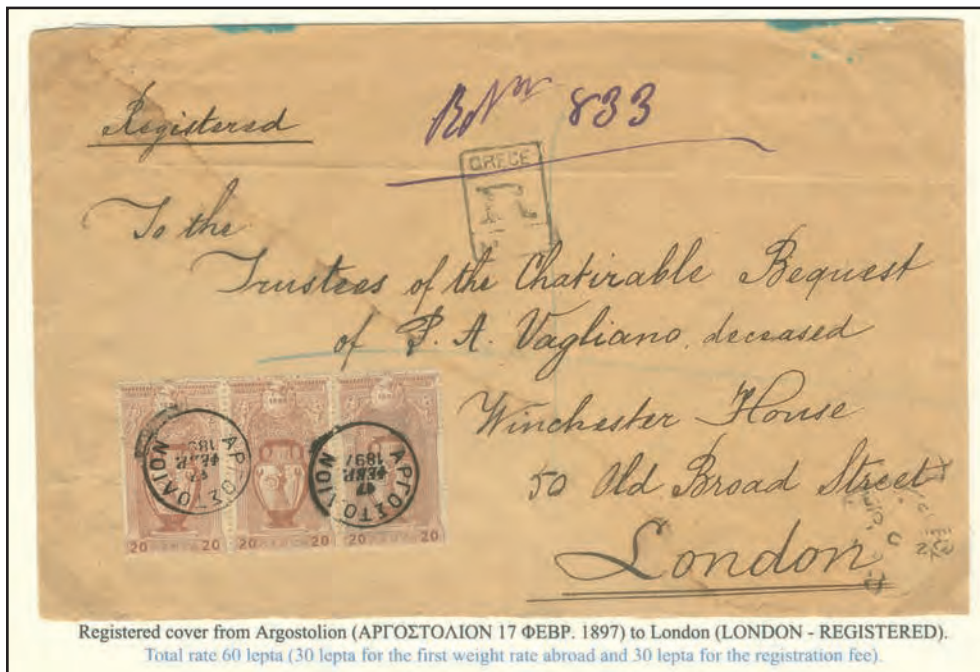 Registered
833
GRECE
To the
Trustees of the Chatirable Bequest
of P. A. Vagliano, deceased
Winchester House
50 Old Broad Street
London
ΑΡΓΟΣΤΟΛΙΟΝ
ΦΕΒΡ.
ΑΡΓΟΣΤΟΛΙΟΝ
17
ΦΕΒΡ.
1897
20 ΛΕΠΤΑ 20 20 ΛΕΠΤΑ 20 20 ΛΕΠΤΑ 20
Registered cover from Argostolion (ΑΡΓΟΣΤΟΛΙΟΝ 17 ΦΕΒΡ. 1897) to London (LONDON - REGISTERED).
Total rate 60 lepta (30 lepta for the first weight rate abroad and 30 lepta for the registration fee).